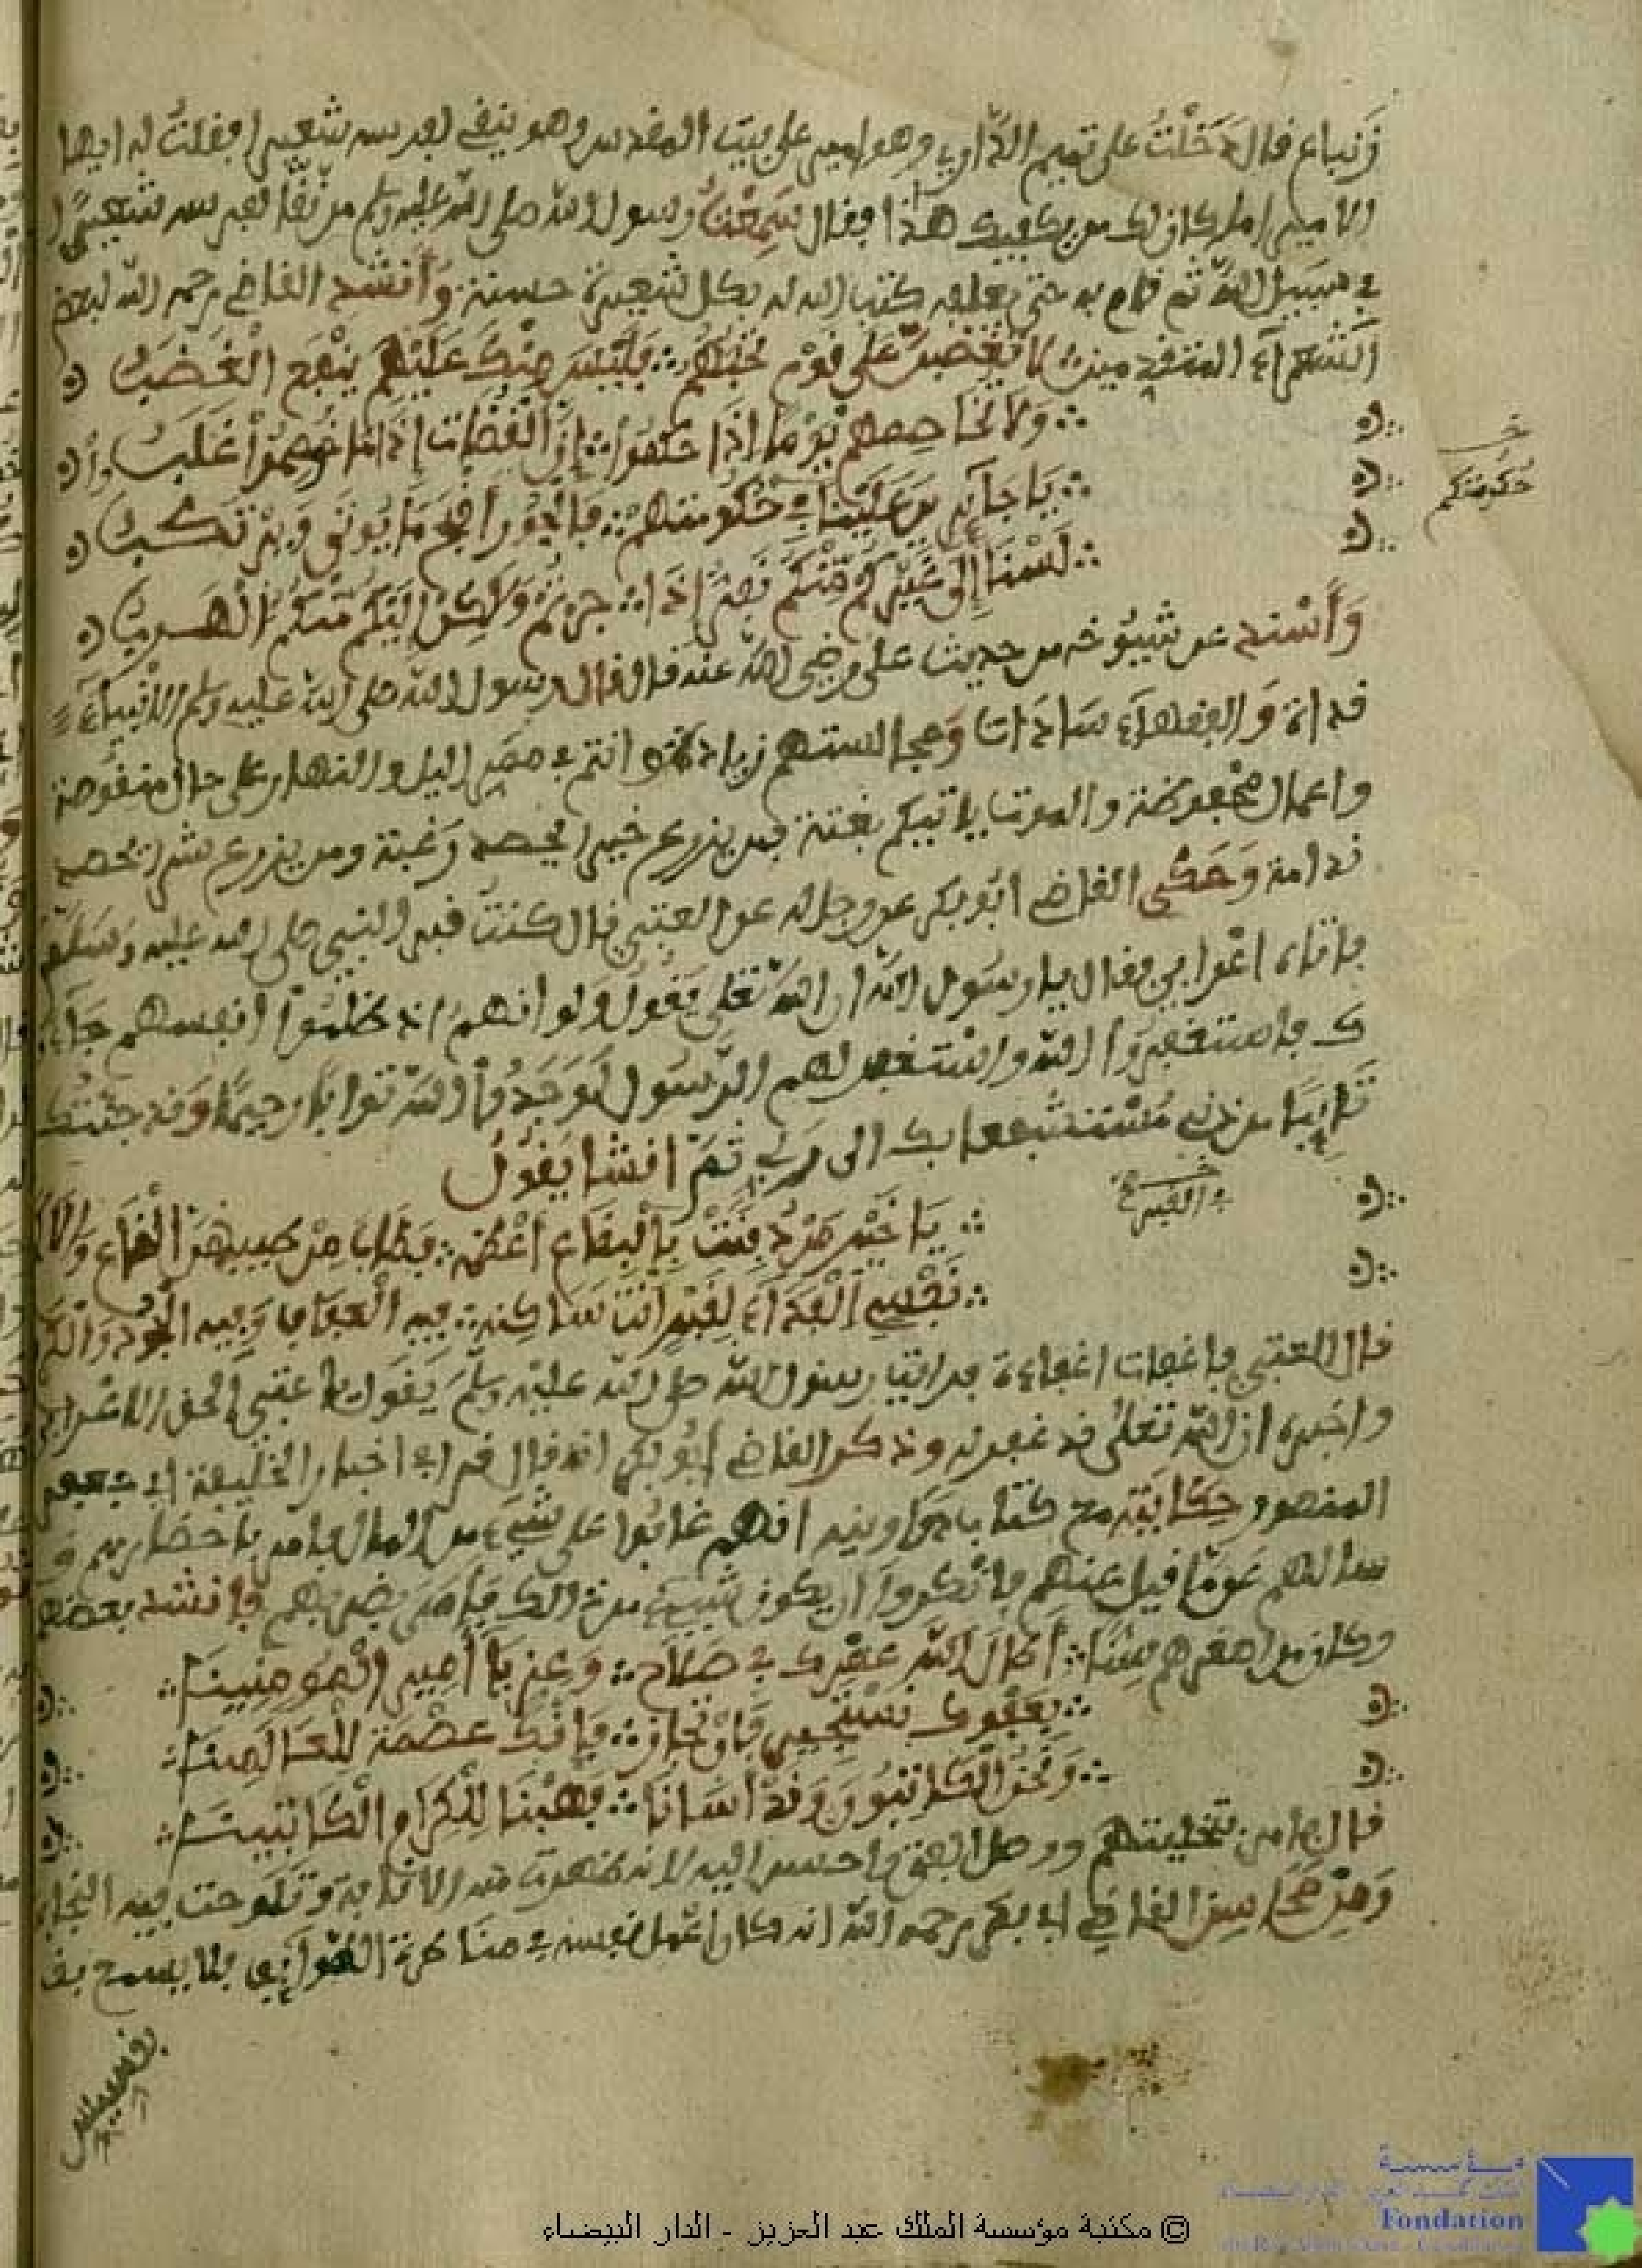 زَنباع قال دَخَلْتُ على تميم الدّاري وهو امير على بيت المقدس وهو ينقي لفرسه شعيرا فقلتُ له ايها
الامير اما كان لك من يكفيك هذا فقال سَمِعْتُ رسول الله صلى الله عليه وسلم من نقّا لفرسه شعيرًا
في سبيل اللهِ ثم قام به حتى يعلفه كتب الله له بكل شعيرة حسنة وَأَنْشَدَ القاضي رحمه الله لبعض
الشعرآء المتقدمين لا تغضبنّ على قوم تحبّهم فليس منك عليهم ينفع الغضبُ
ولا تخاصمهم يوما إذا حكموا إنّ القضات إذا ما خوصموا غلبوا
يا جآيرين علينا في حكومتهم فالجور اقبح ما يوتى ويرتكبُ
حكومتكم
لسنا إلى غيركم منكم نفرّ إذا جرتم ولاكن اليكم منكم الهربُ
وَأَسْند عن شيوخه من حديث علي رضي الله عنه قال قال رسول الله صلى الله عليه وسلم الانبيآء
قادة وَالفقهآء سادات ومجالستهم زيادة وانتم في ممر اليل والنهار على ءاجال منقوصة
واعمال محفوظة والموت ياتيكم بغتة فمن يزرع خيرا يحصد رغبة ومن يزرع شرا يحصد
ندامة وَحَكى القاضي ابو بكر عن رجاله عن العتبي قال كنت عند قبر النبي صلى الله عليه وسلم
فاتاه اعْرابي فقال يا رسول الله ان الله تعلى يقول ولو انهم اذ ظلموا انفسهم جآءو
ك فاستغفروا الله واستغفر لهم الرّسول لوجدوا الله توابا رحيما وقد جئتك
تآيبا من ذنبي مستشفعا بك الى ربي ثمّ انشا يقولُ
يا خير من دفنت بالبقاع اعظمه فطاب من طيبهن القاع والا
في القبر
نفسي الفدآء لقبر انت ساكنه فيه العفاف وفيه الجود والكر
قال العتبي فاغفات اغفاءة فرايت رسول الله صلى الله عليه وسلم يقول يا عتبي الحق الاعرابي
واخبره ان الله تعلى قد غفر له وذكر القاضي ابو بكر انه قال قرا في اخبار الخليفة ابي جعفر
المنصور حكايته مع كتاب دواوينه انهم غابوا على شيء من المال فامر باحضارهم و
سالهم عمّا قيل عنهم فانكروا ان يكون شيء من ذالك فامر بضربهم فانشد بعضهم
وكان من اصغرهم سنّا أطال الله عمرك في صلاح وعز يا أمير المومنينا
بعفوك نستجير فان تجرنا فانك عصمة للعالمينا
ونحن الكاتبون وقد أسانا فهبنا للكرام الكاتبينا
قال فامر بتخليتهم ووصل الفتى واحسن اليه لانه ظهرت منه الانابة وتلوحت فيه النجابة
وَمِن محاسن القاضي ابي بكر رحمه الله انه كان اعمل نفسه في مناظرة الطوآيف فلا يسمع بف
© مكتبة مؤسسة الملك عبد العزيز - الدار البيضاء
مؤسسة
Fondation